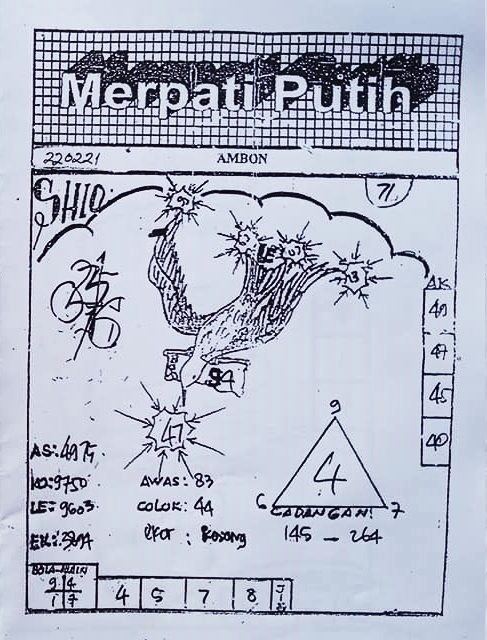 Merpati Putih
220221
AMBON
SHIO:
71
LE
AK
49
47
45
40
94
47
9
4
6
7
CADANGAN:
145 - 264
AS: 4975
KO: 9750
LE: 9603
AWAS: 83
COLOK: 44
EKOR: Kosong
BOLA MAIN
9 4
1 7
4 5 7 8